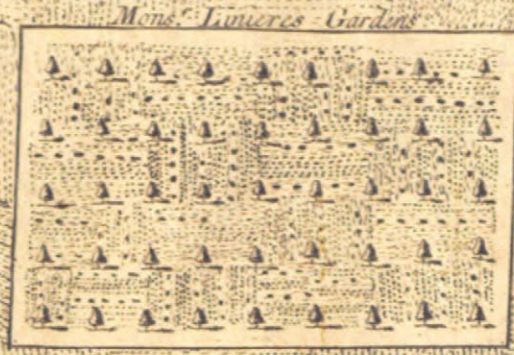 Mons.r Linieres Gardens